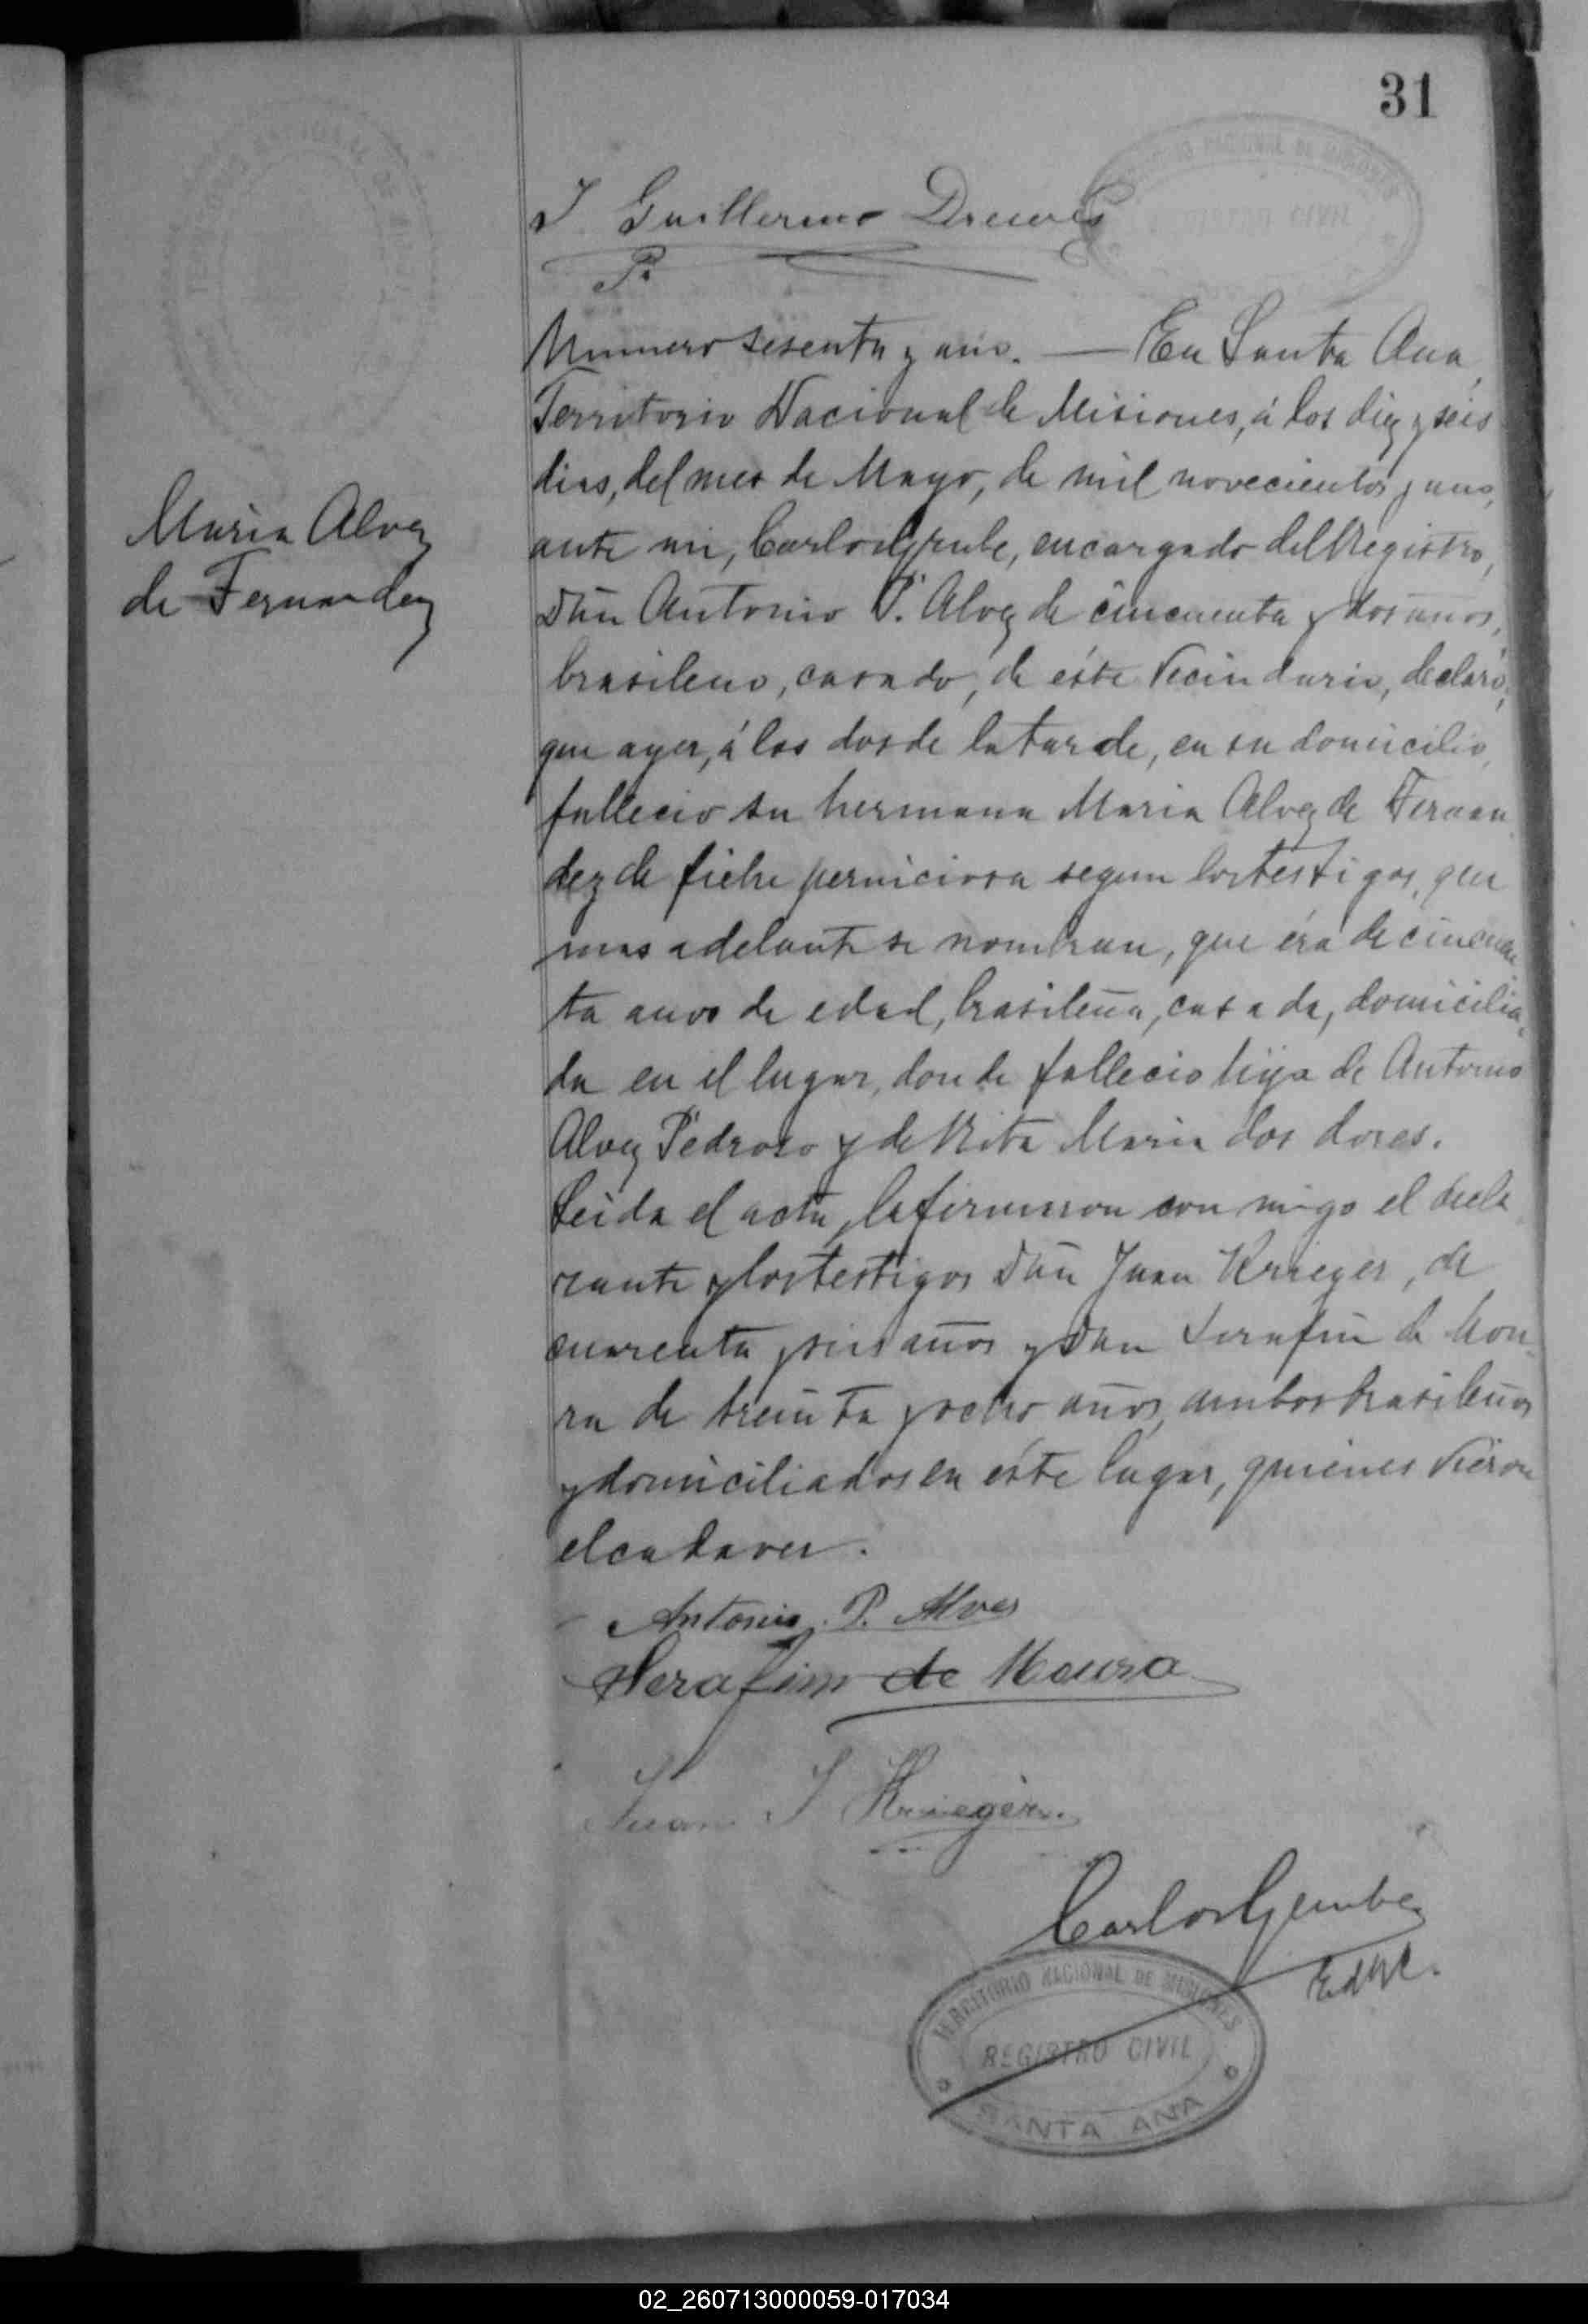 31
J Guillermo Drewes
P.
Numero sesenta y uno. — En Santa Ana,
Territorio Nacional de Misiones, á los diez y seis
dias, del mes de Mayo, de mil novecientos y uno,
ante mi, Carlos Grube, encargado del Registro,
Maria Alvez
de Fernandez
Dn̄ Antonio P. Alvez de cincuenta y dos años,
brasileno, casado, de éste vecindario, declaró,
que ayer, á las dos de la tarde, en su domicilio,
fallecio su hermana Maria Alvez de Fernan
dez de fiebre perniciosa segun los testigos, que
mas adelante se nombran, que éra de cincuen
ta anos de edad, brasileña, casada, domicilia
da en el lugar, donde fallecio hija de Antonio
Alvez Pedroso y de Rita Maria dos dores.
Leida el acta, la firmaron con migo el decla
rante y los testigos Dn̄ Juan Krieger, de
cuarenta y seis años y Dn Serafin de Mou
ra de treinta y ocho años, ambos brasileños
y domiciliados en éste lugar, quienes vieron
el cadaver.
Antonio P. Alves
Serafim de Moura
Juan J Krieger.
Carlos Grube
EdRC.
TERRITORIO NACIONAL DE MISIONES
REGISTRO CIVIL
SANTA ANA
02_260713000059-017034